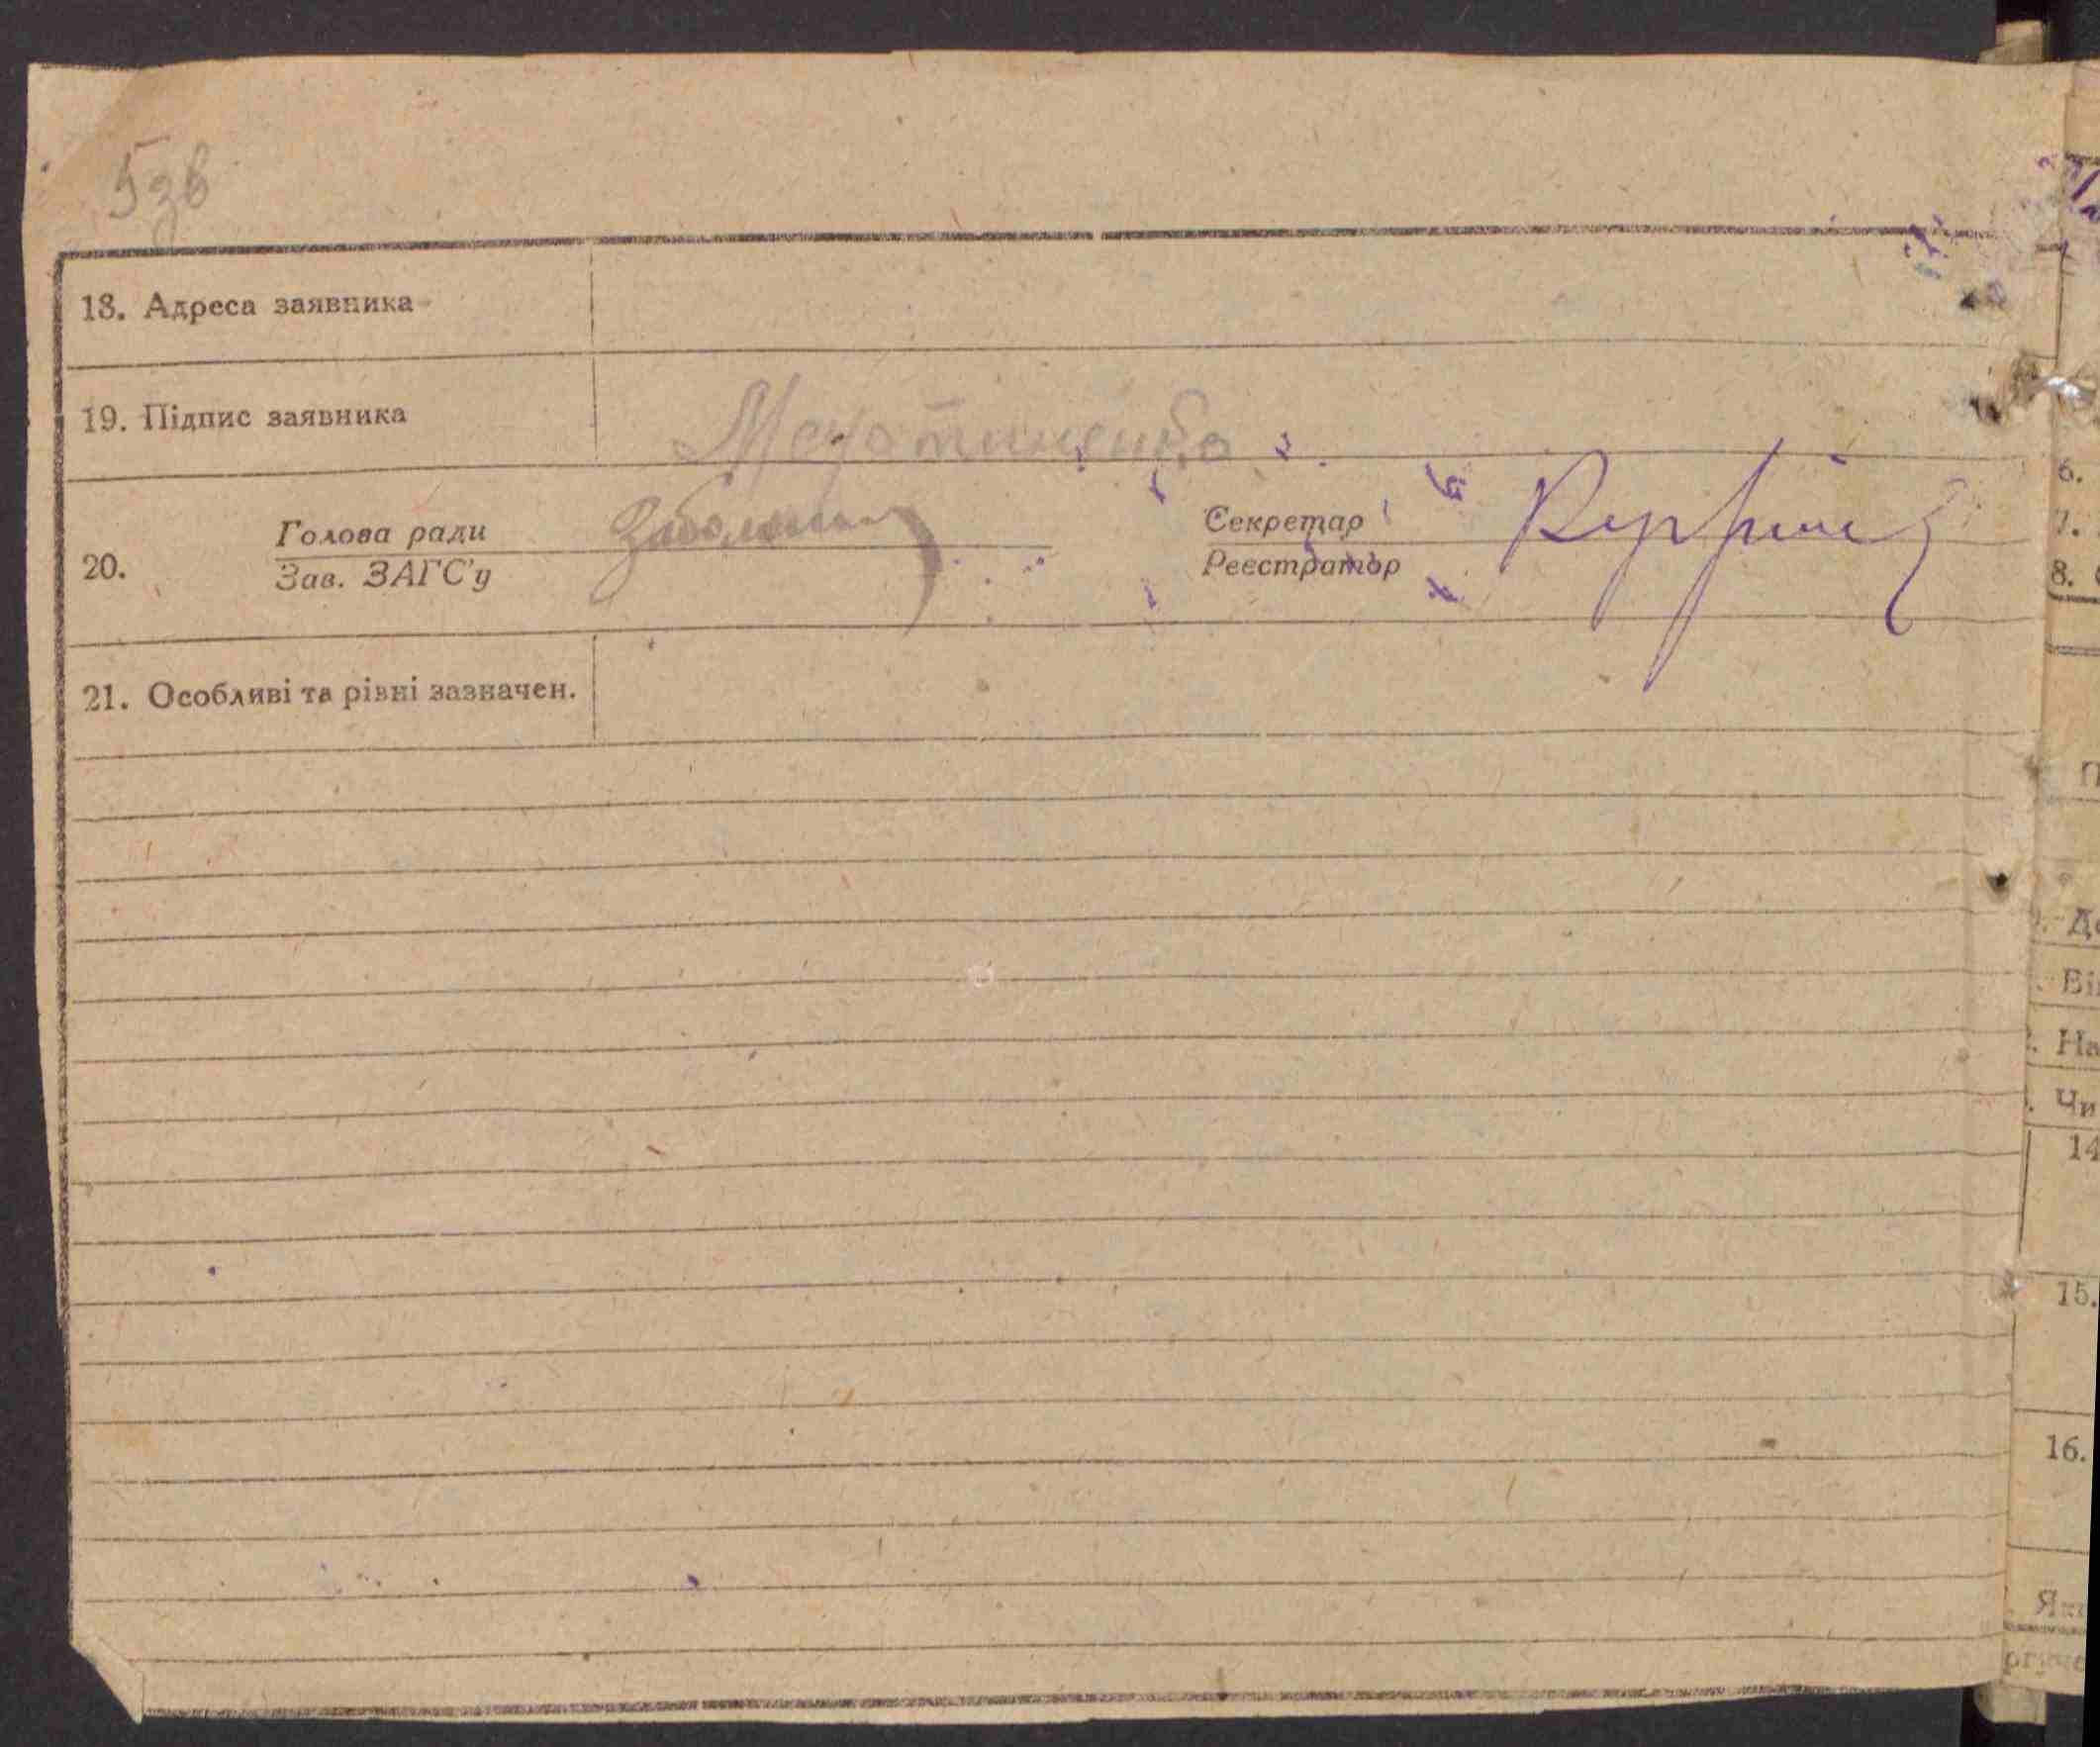 5зв
18. Адреса заявника
19. Підпис заявника
20. Голова ради
Зав. ЗАГС'у
Секретар
Реєстратор
21. Особливі та рівні зазначен.
6.
7.
8.
Де
Ві
На
Чи
14
15.
16.